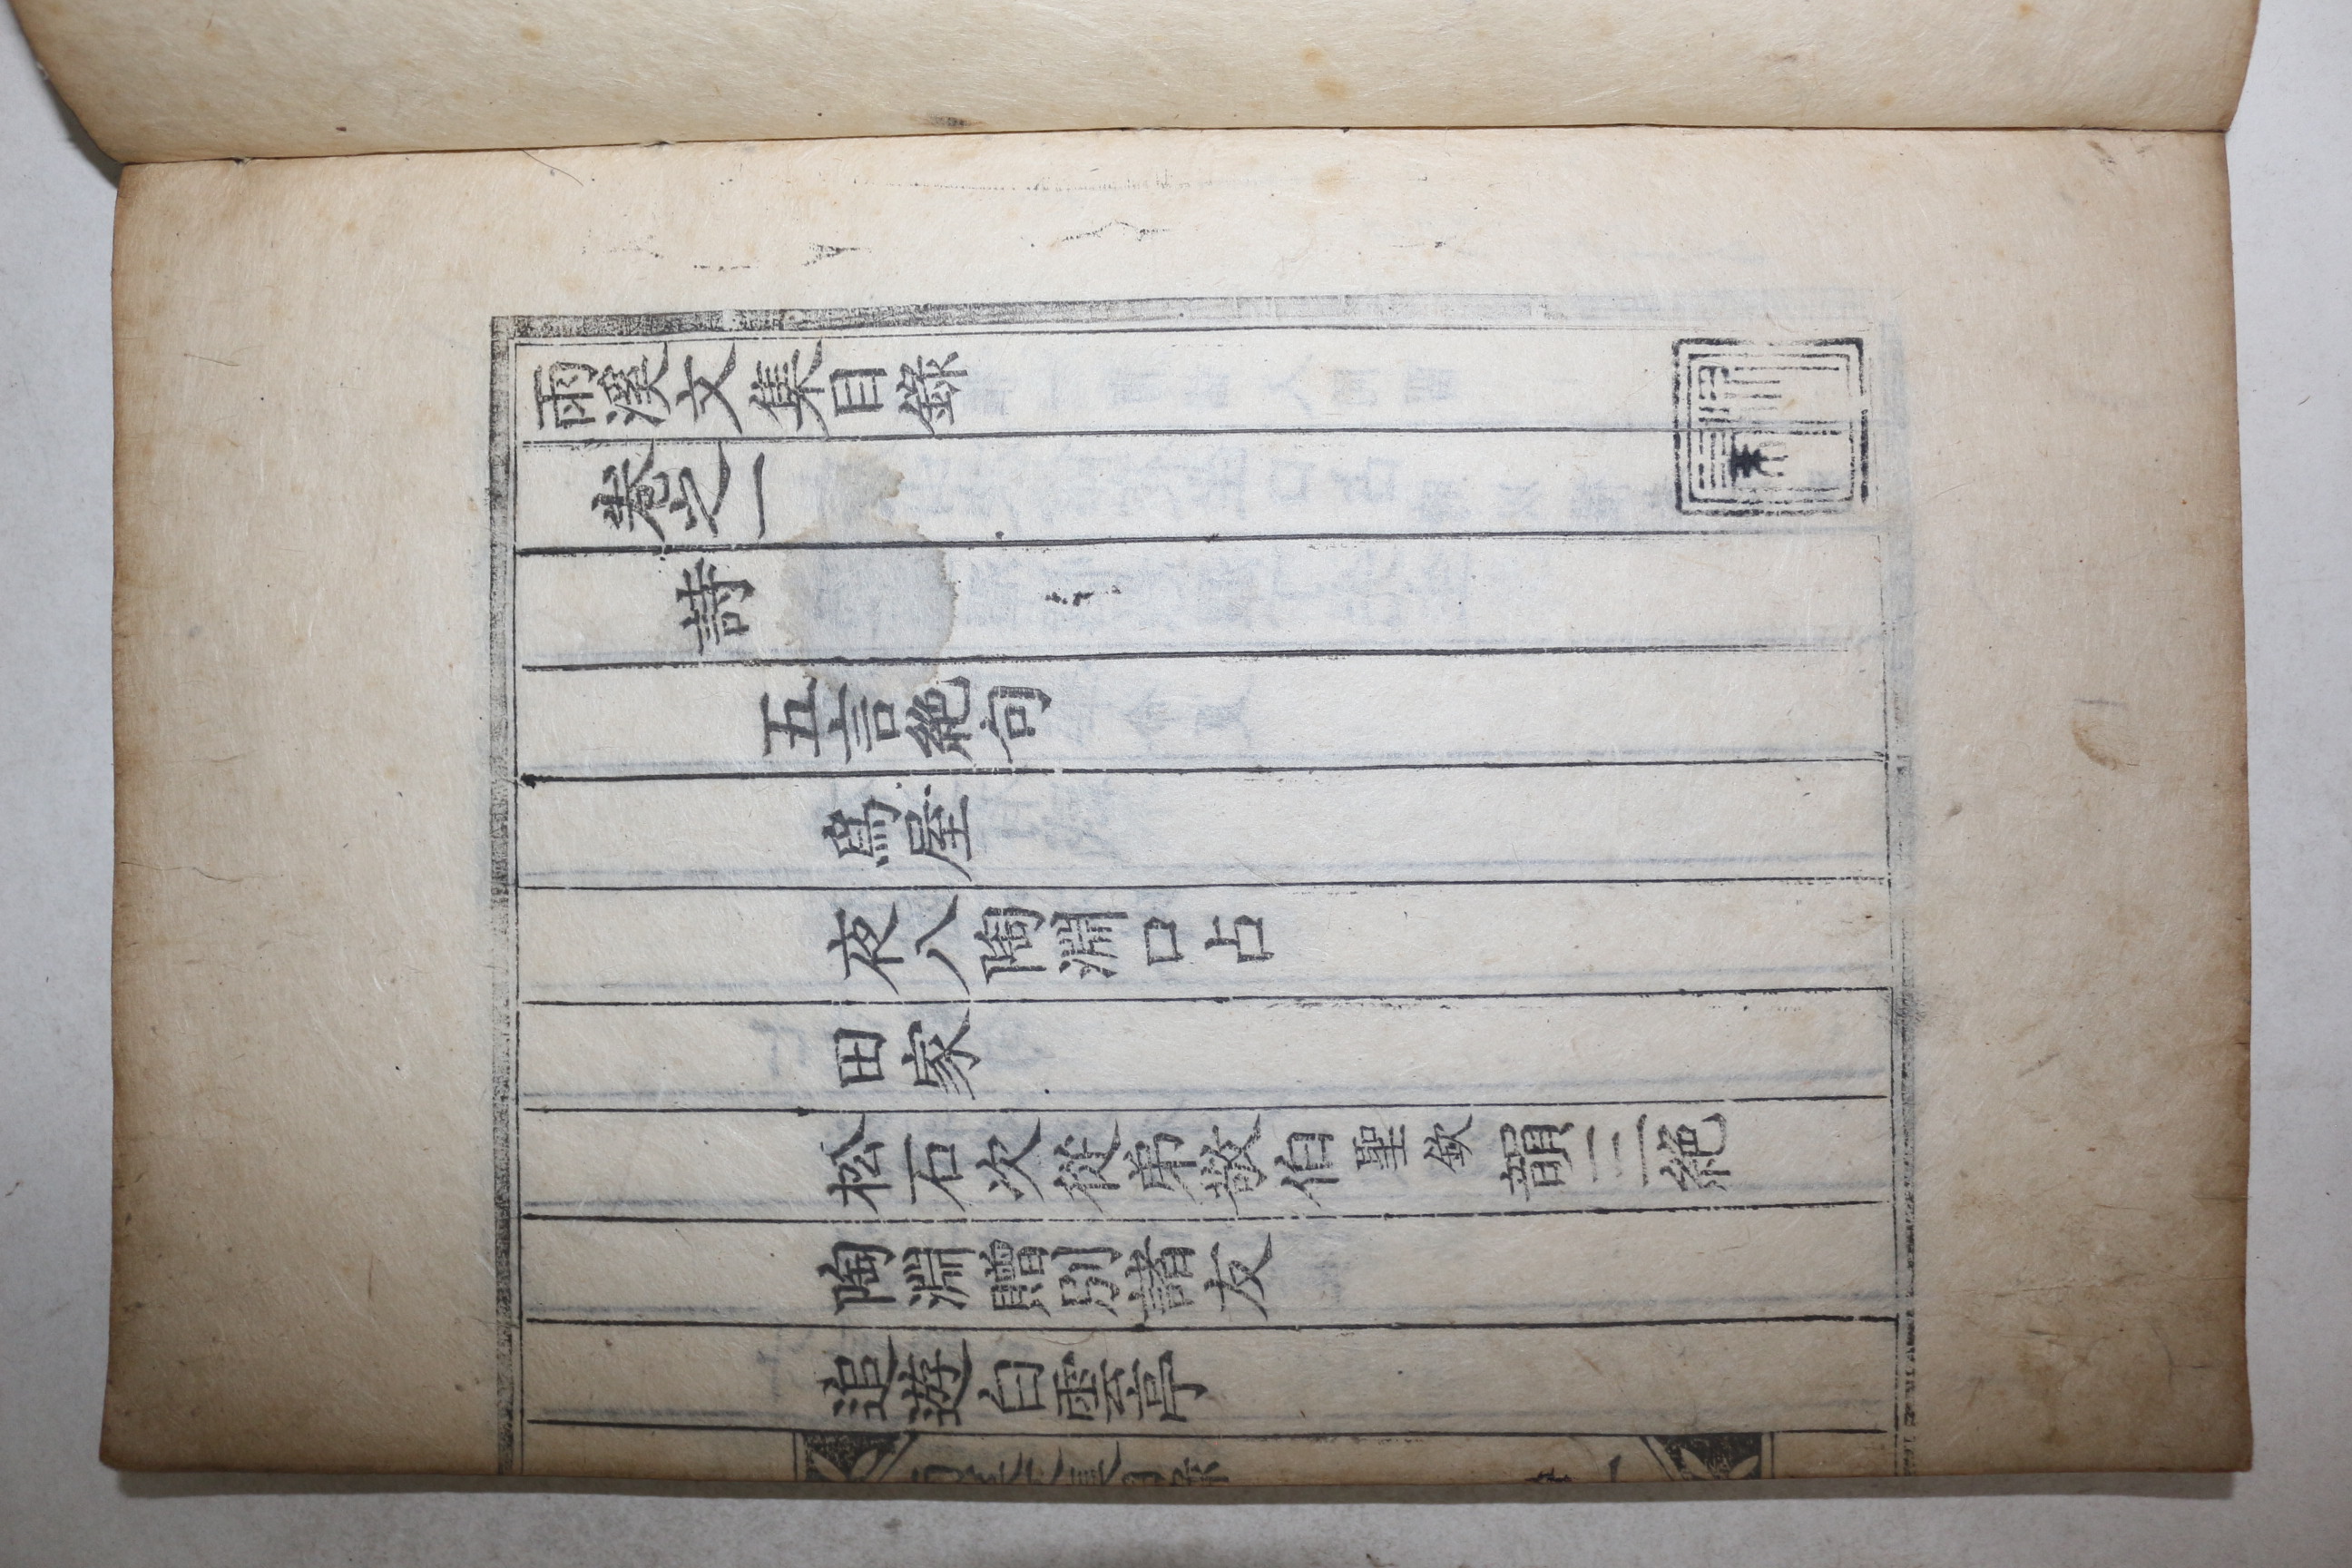 雨溪文集目錄
卷之一
詩
五言絶句
屋
夜入陶淵口占
田家
松石次從弟敬伯聖欽韻三絶
陶淵贈別諸友
追遊白雲亭